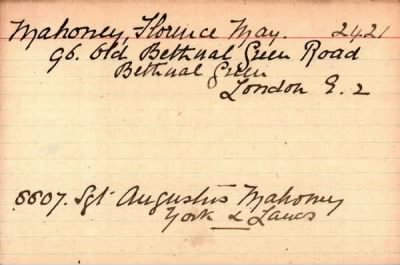 Mahoney, Florence May. 2421
96. Old Bethnal Green Road
Bethnal Green
London E. 2
6607. Sgt Augustus Mahoney
York & Lancs